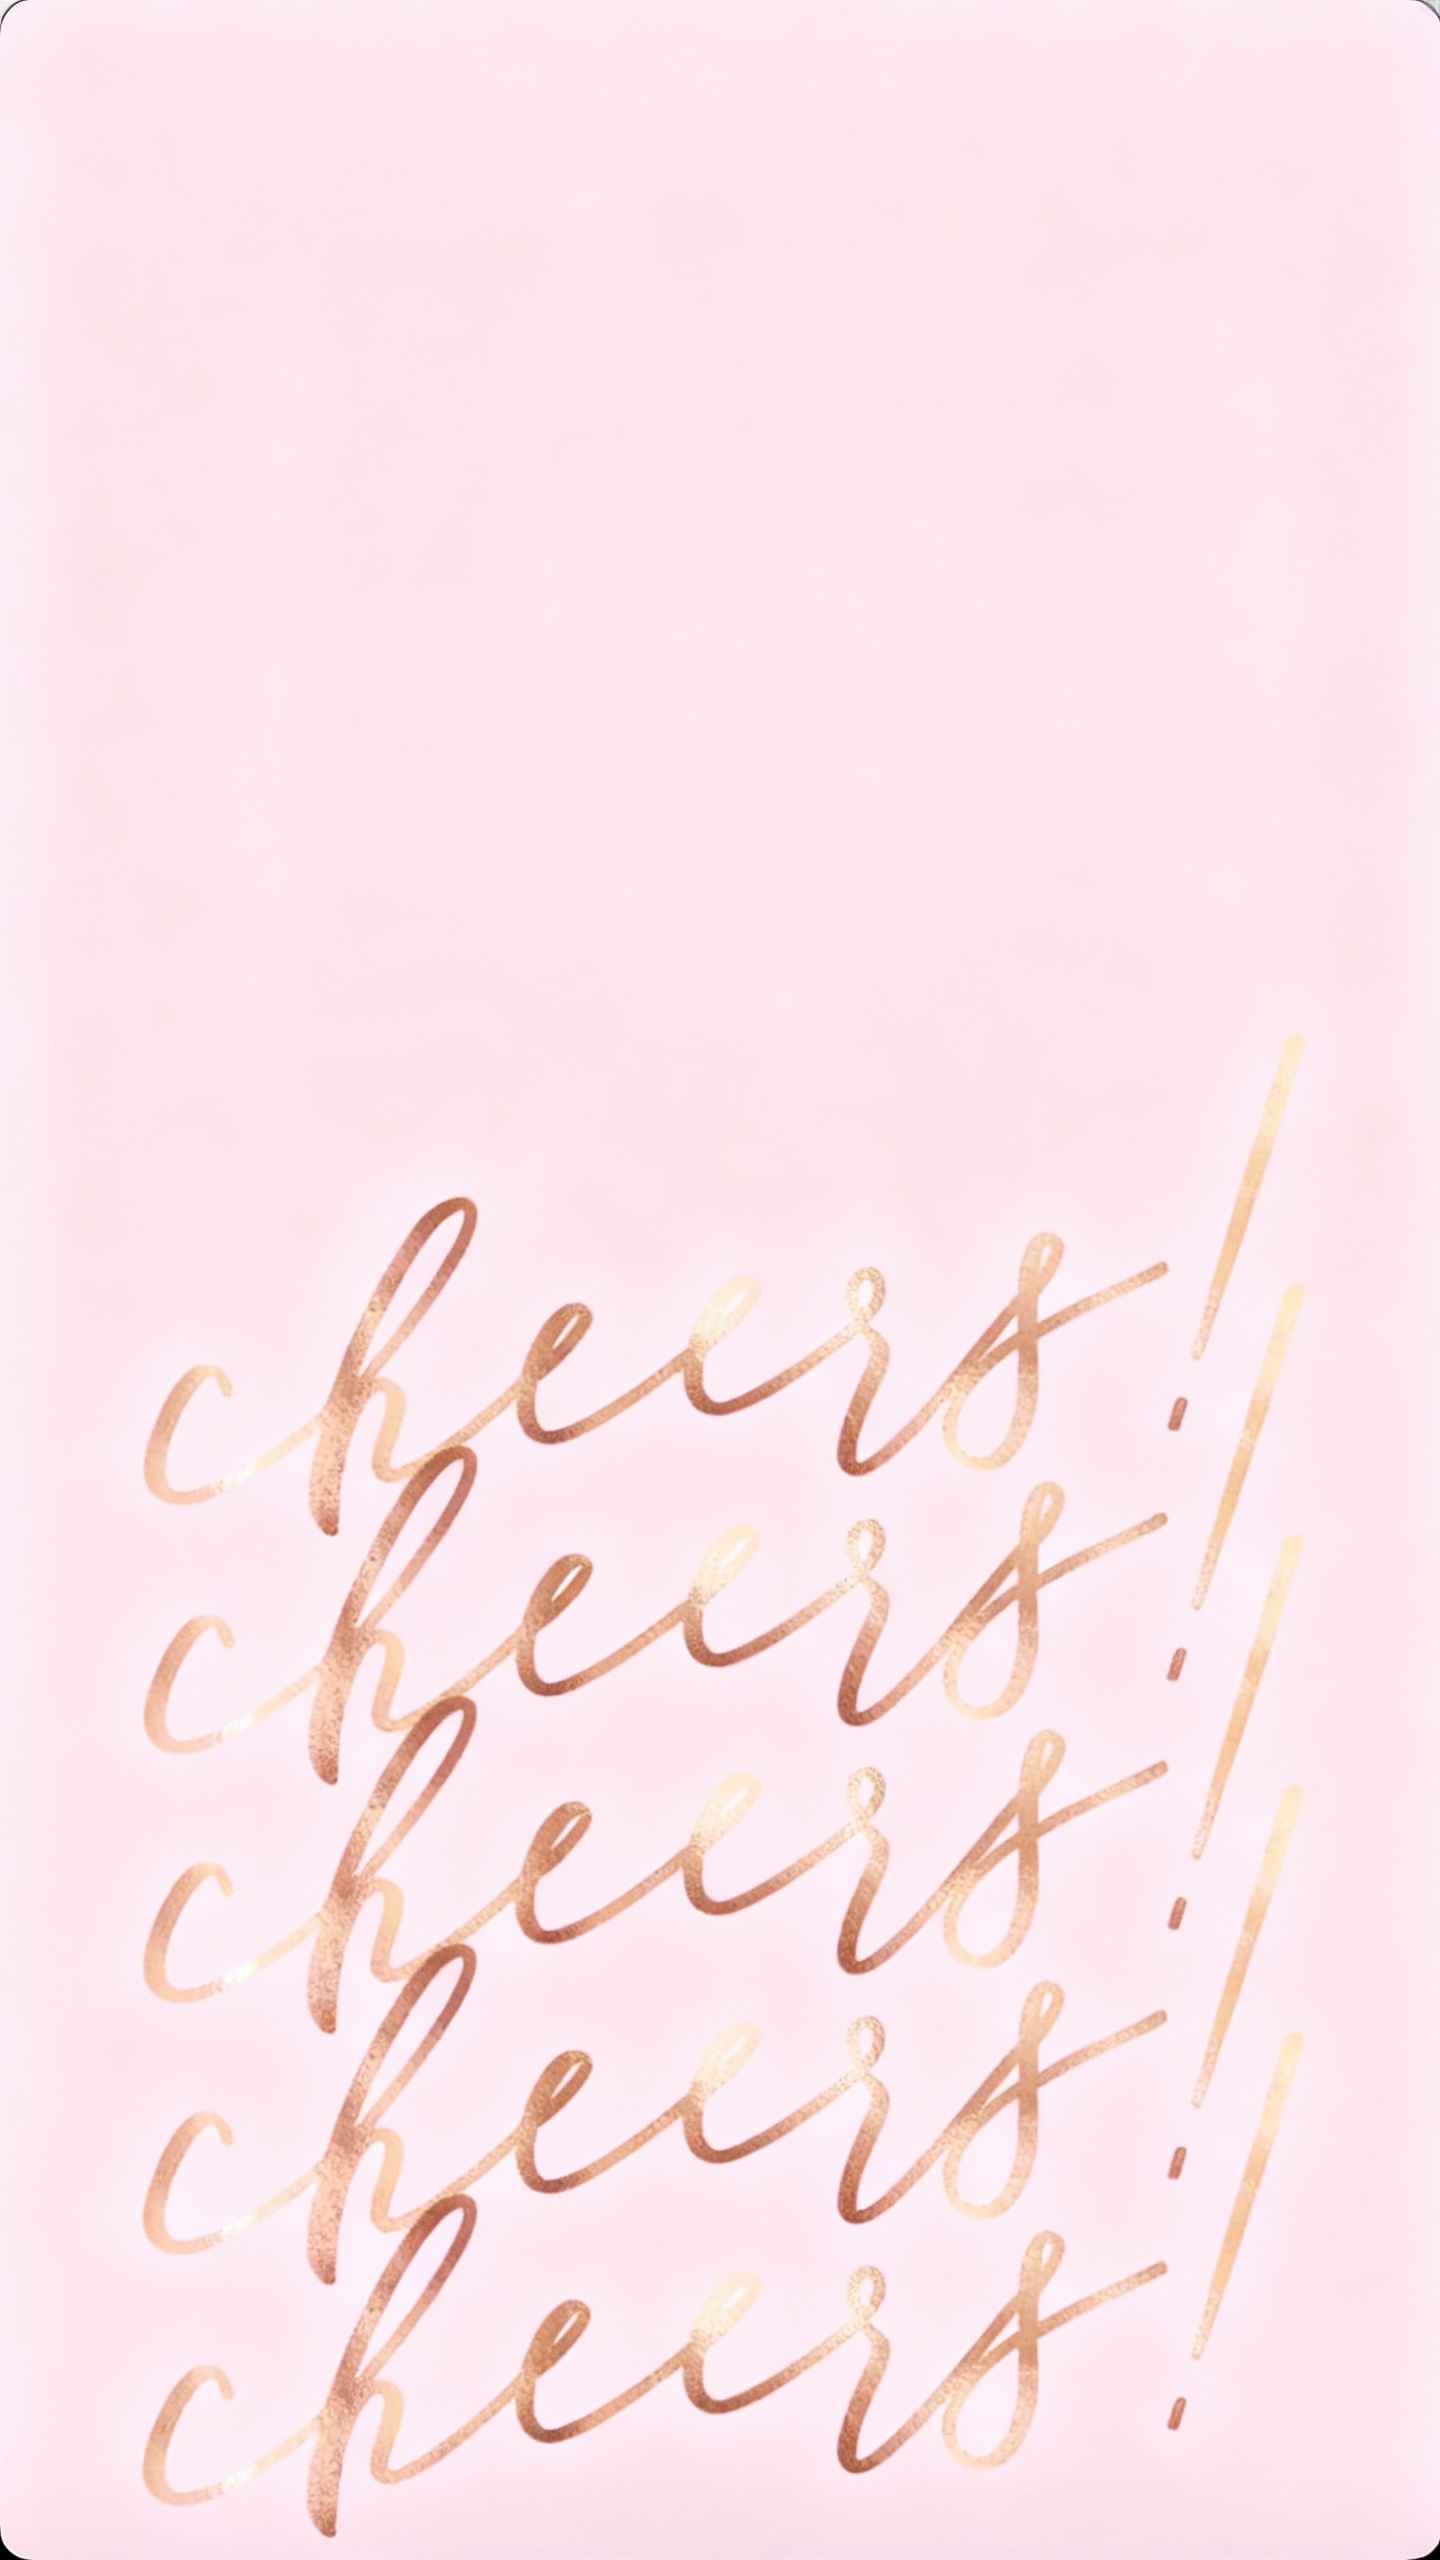 cheers!
cheers!
cheers!
cheers!
cheers!